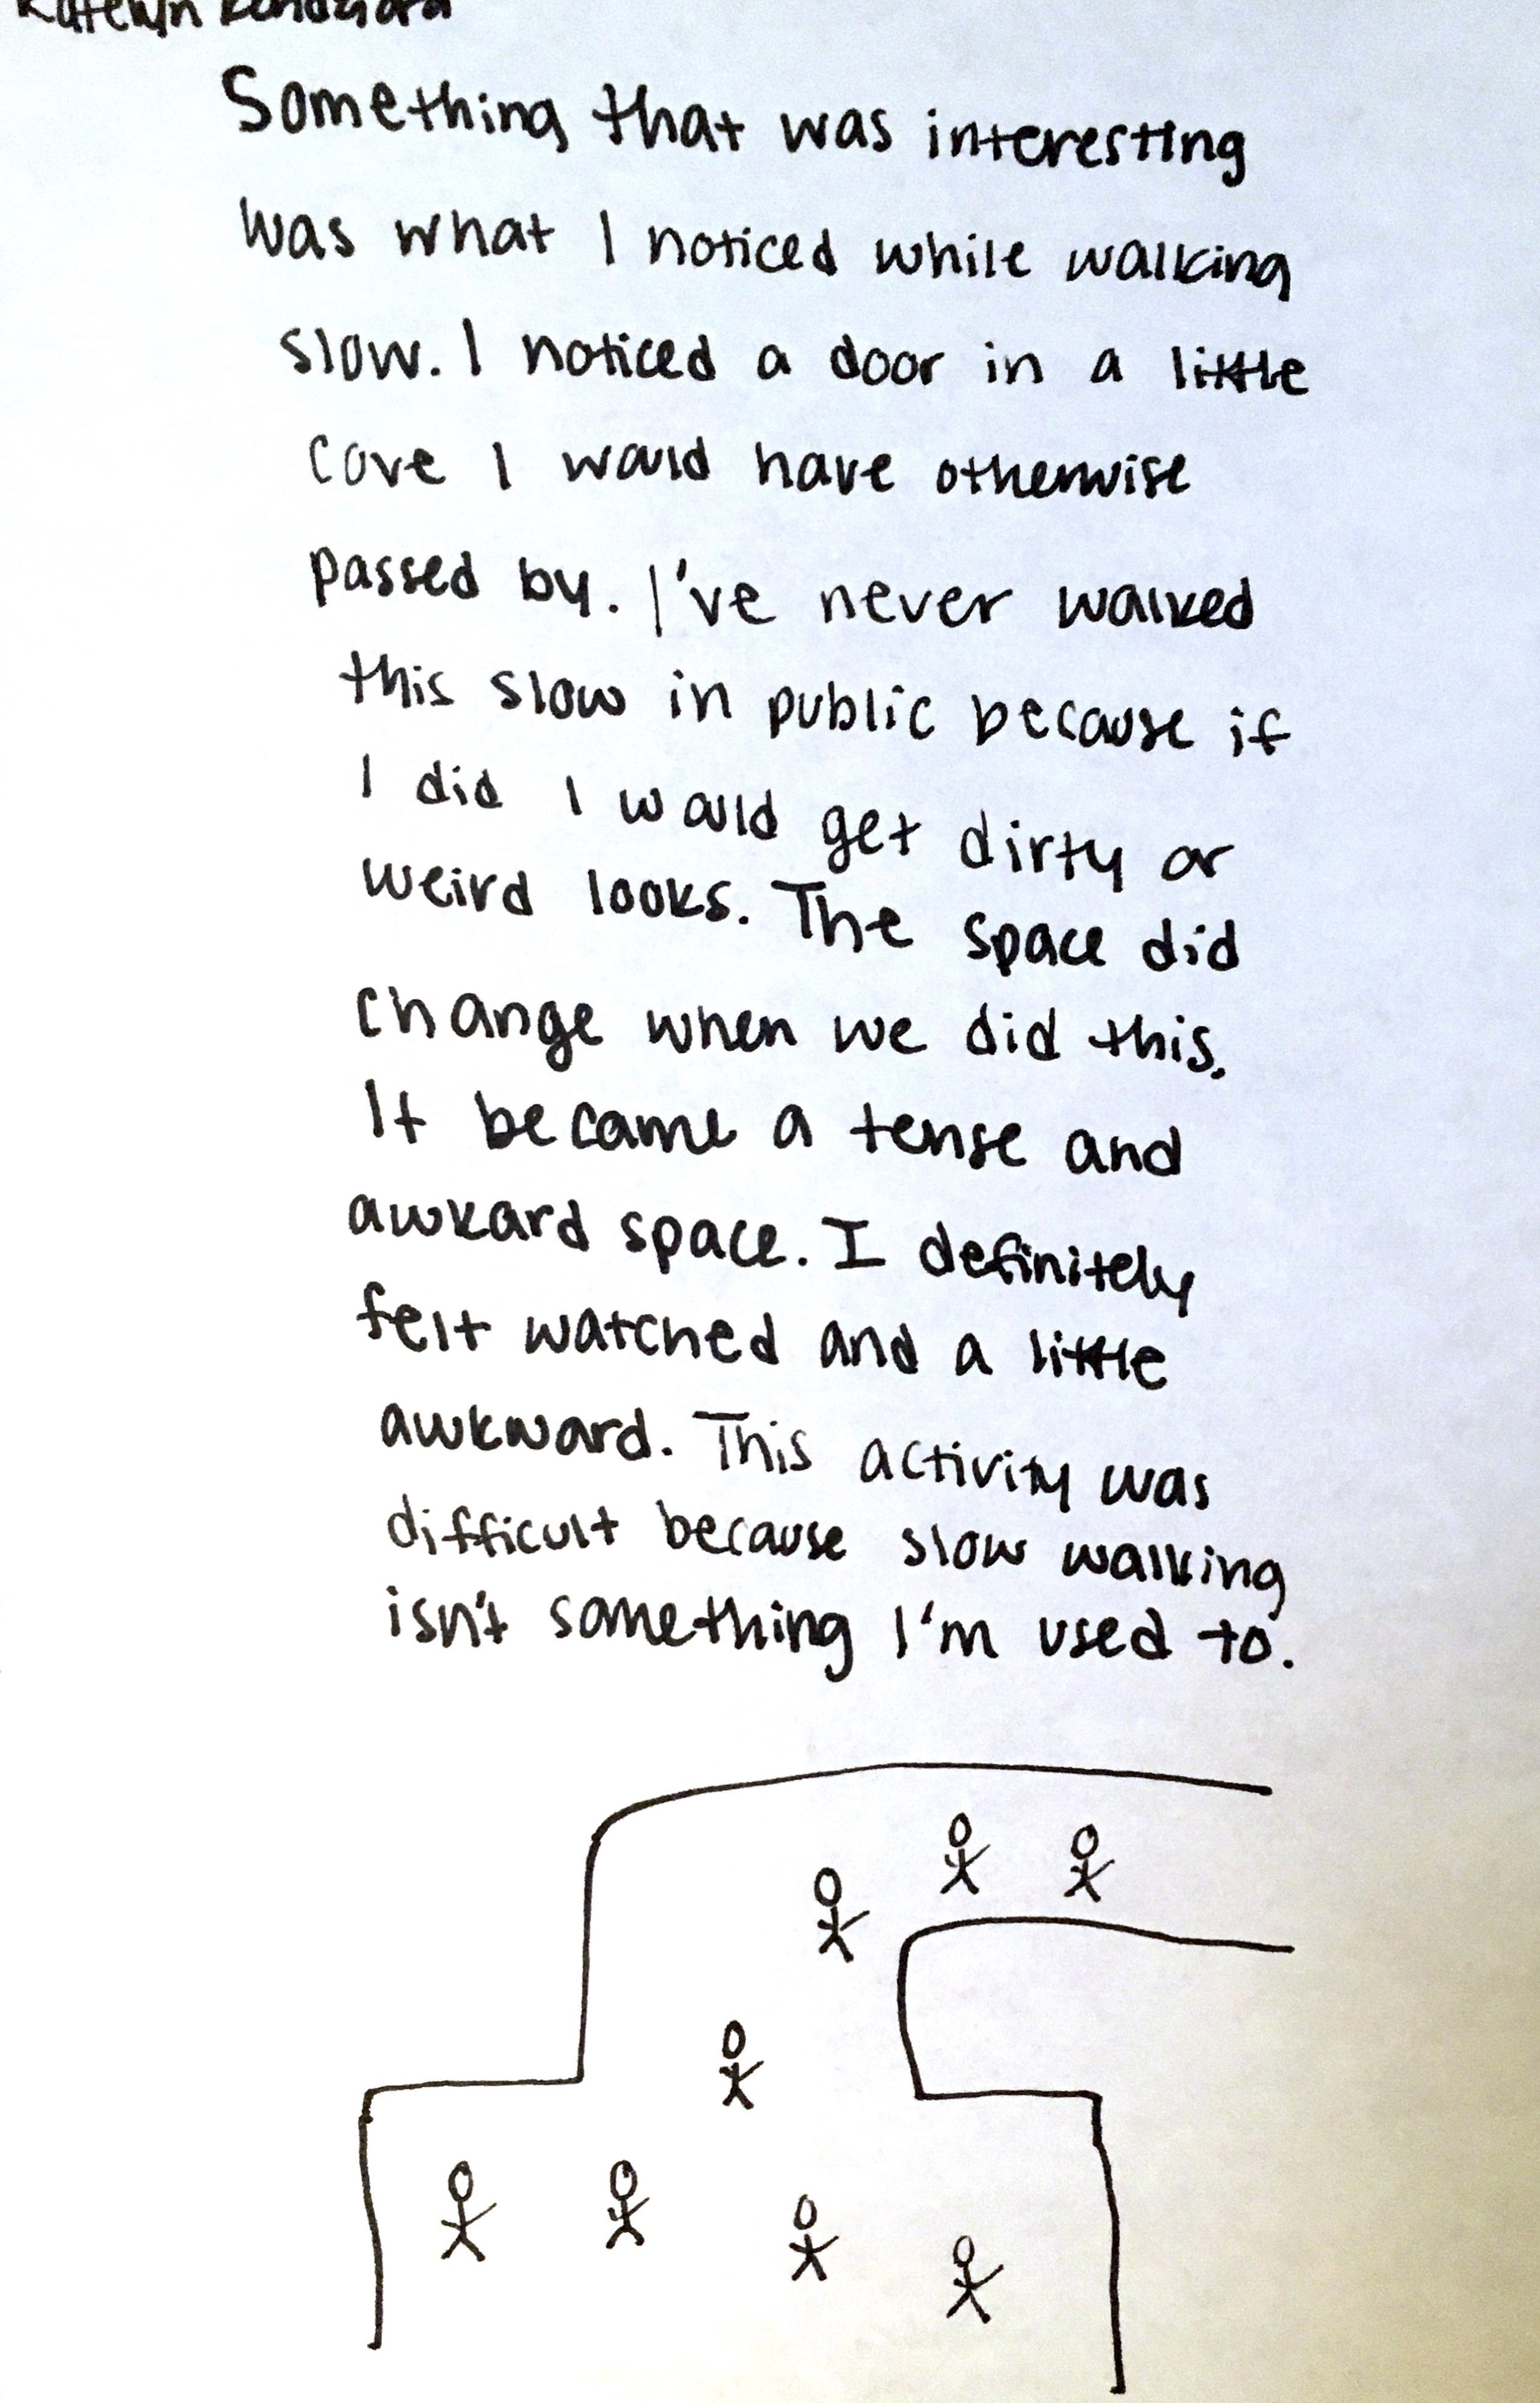 Something that was interesting
was what I noticed while walking
slow. I noticed a door in a little
cove I would have otherwise
passed by. I've never walked
this slow in public because if
I did I would get dirty or
weird looks. The space did
change when we did this.
It became a tense and
awkard space. I definitely
felt watched and a little
awkward. This activity was
difficult because slow walking
isn't something I'm used to.